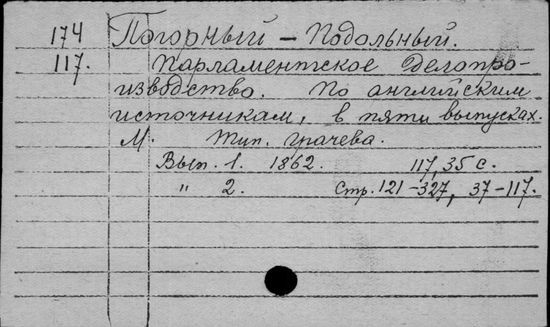 174 Погорный - Подольный.
117. Парламентское делопро-
изводство. По английским
источникам, в пяти выпусках.
М. Тип. Грачева.
Вып. 1. 1862. 117, 35 с.
" 2. Стр. 121-327, 37-117.